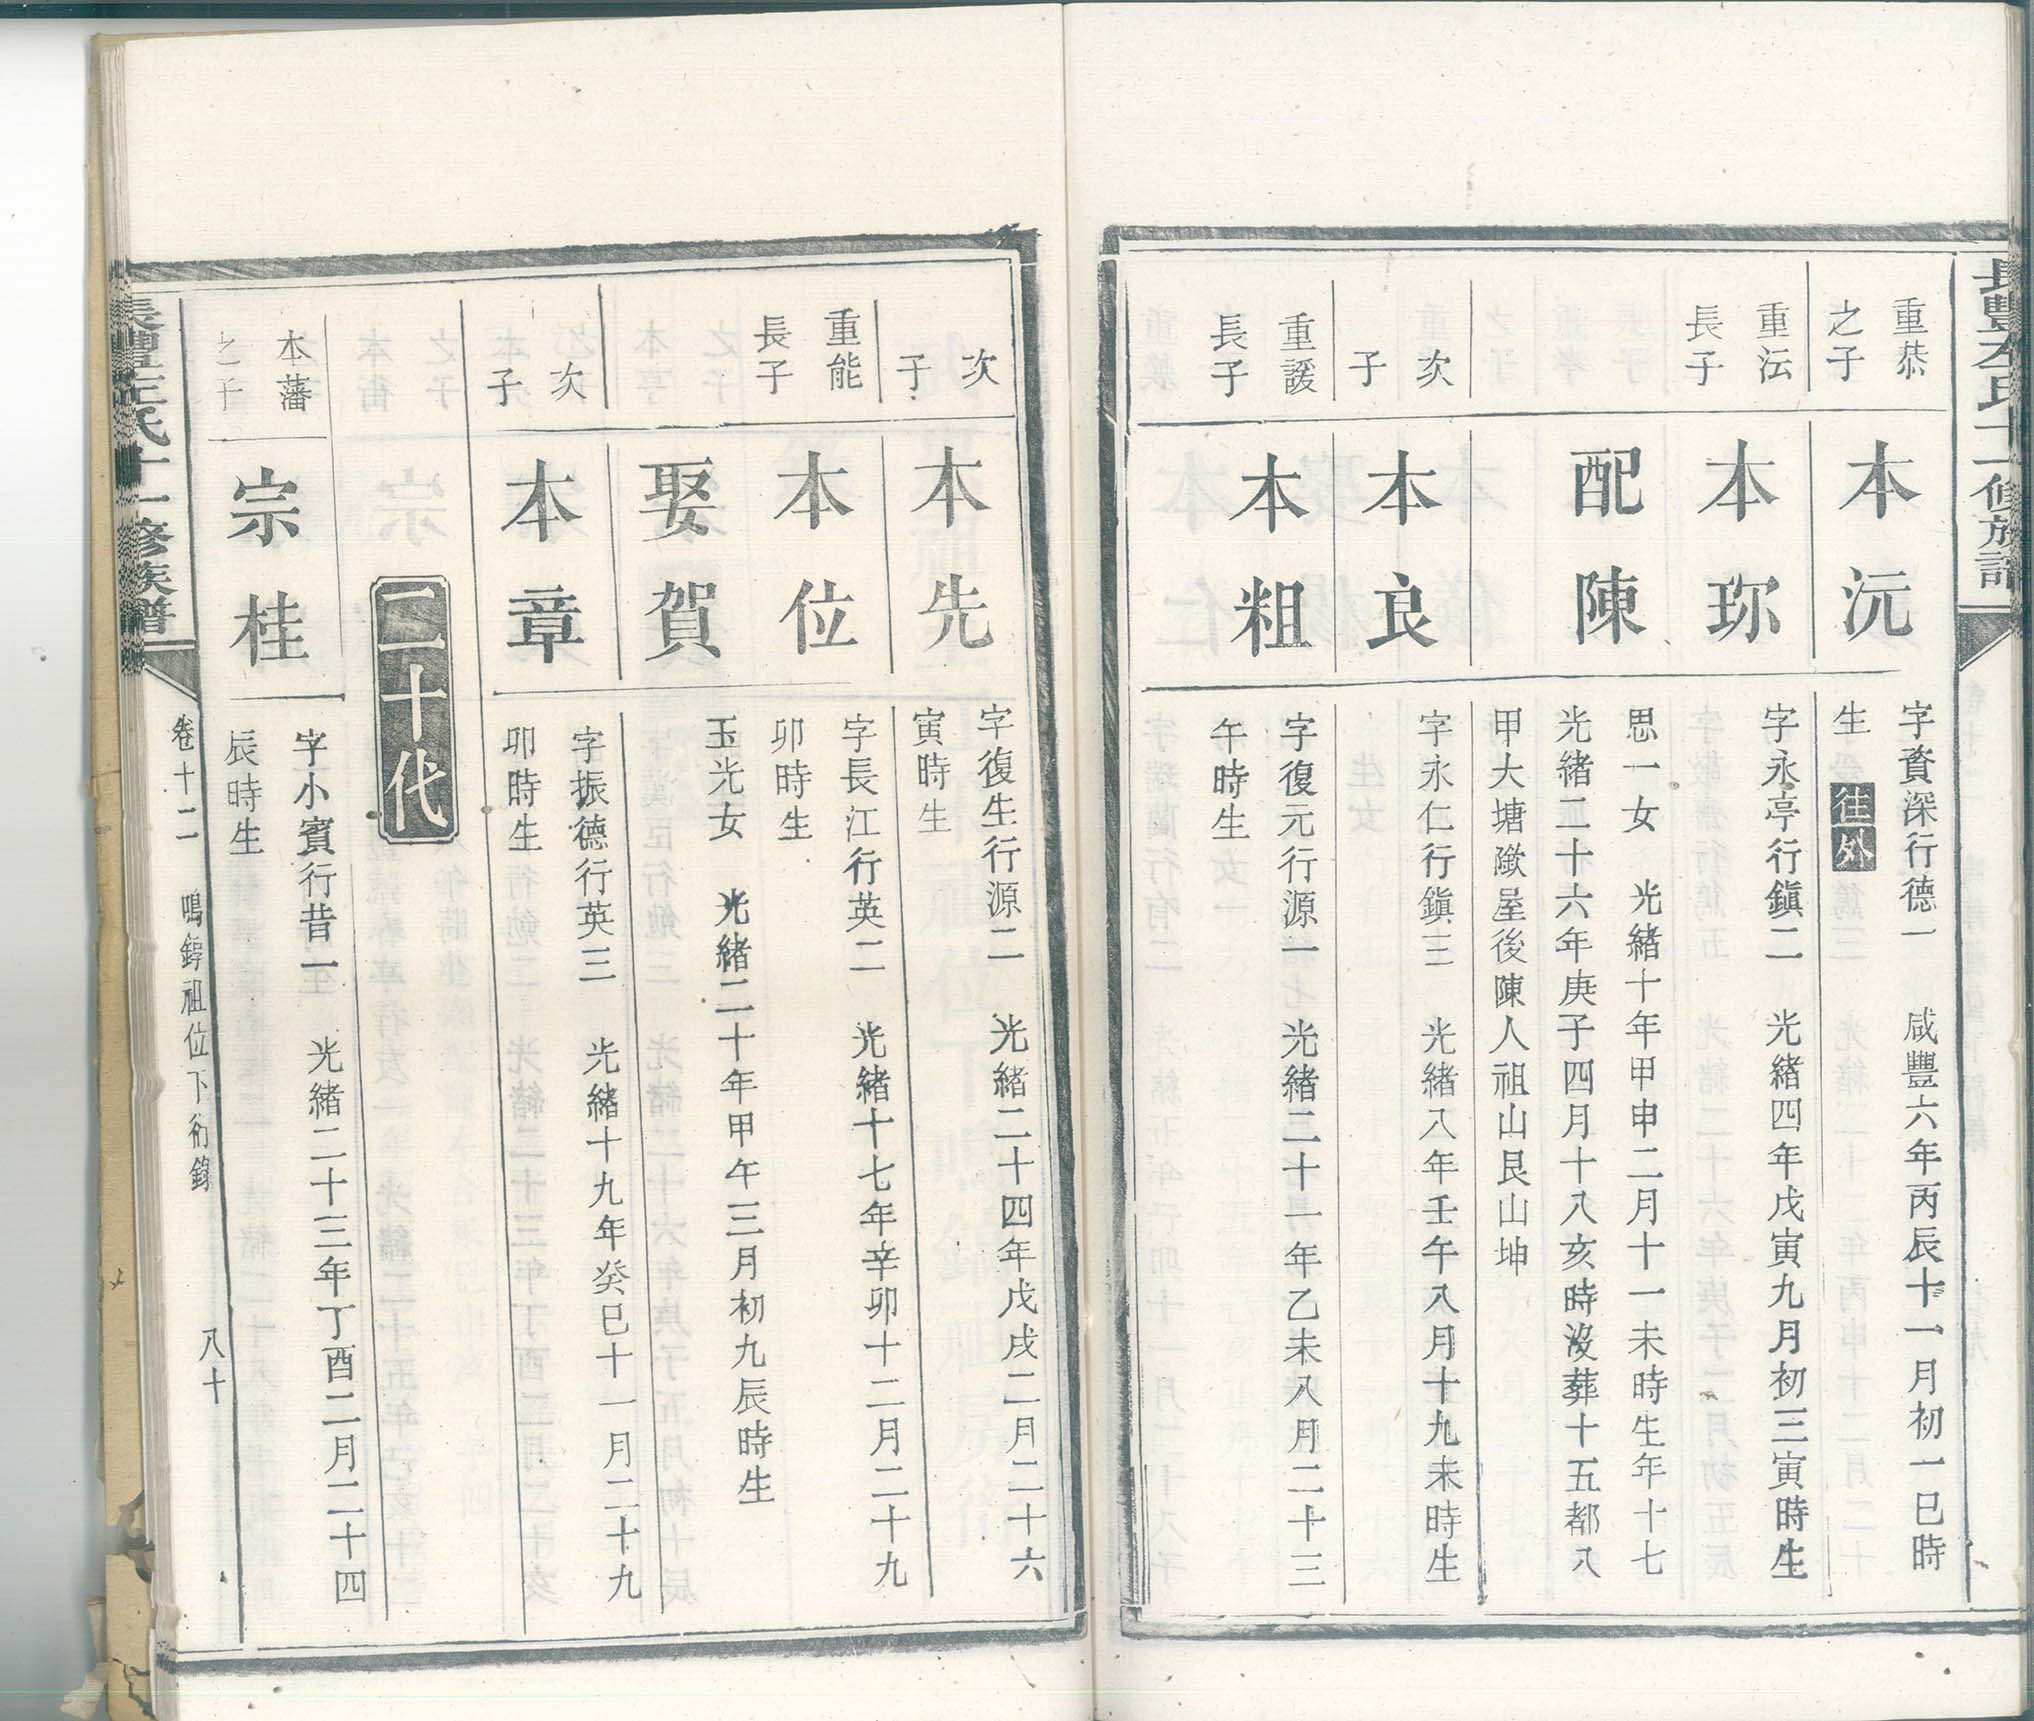 重恭
之子
本沅
字賚深行德一　咸豐六年丙辰十一月初一巳時
生　往外
重沄
長子
本珎
字永亭行鎭二　光緒四年戊寅九月初三寅時生
配陳
思一女　光緒十年甲申二月十一未時生年十七
光緒二十六年庚子四月十八亥時沒葬十五都八
甲大塘墩屋後陳人祖山艮山坤
次
子
本良
字永仁行鎭三　光緒八年壬午八月十九未時生
重諼
長子
本粗
字復元行源一　光緒二十一年乙未八月二十三
午時生
次
子
本先
字復生行源二　光緒二十四年戊戌二月二十六
寅時生
重能
長子
本位
字長江行英二　光緒十七年辛卯十二月二十九
卯時生
娶賀
玉光女　光緒二十年甲午三月初九辰時生
次
子
本章
字振德行英三　光緒十九年癸巳十一月二十九
卯時生
二十代
本藩
之子
宗桂
字小賓行昔一　光緒二十三年丁酉二月二十四
辰時生
氏十一修族譜
卷十二　鳴鋒祖位下衍錄　八十